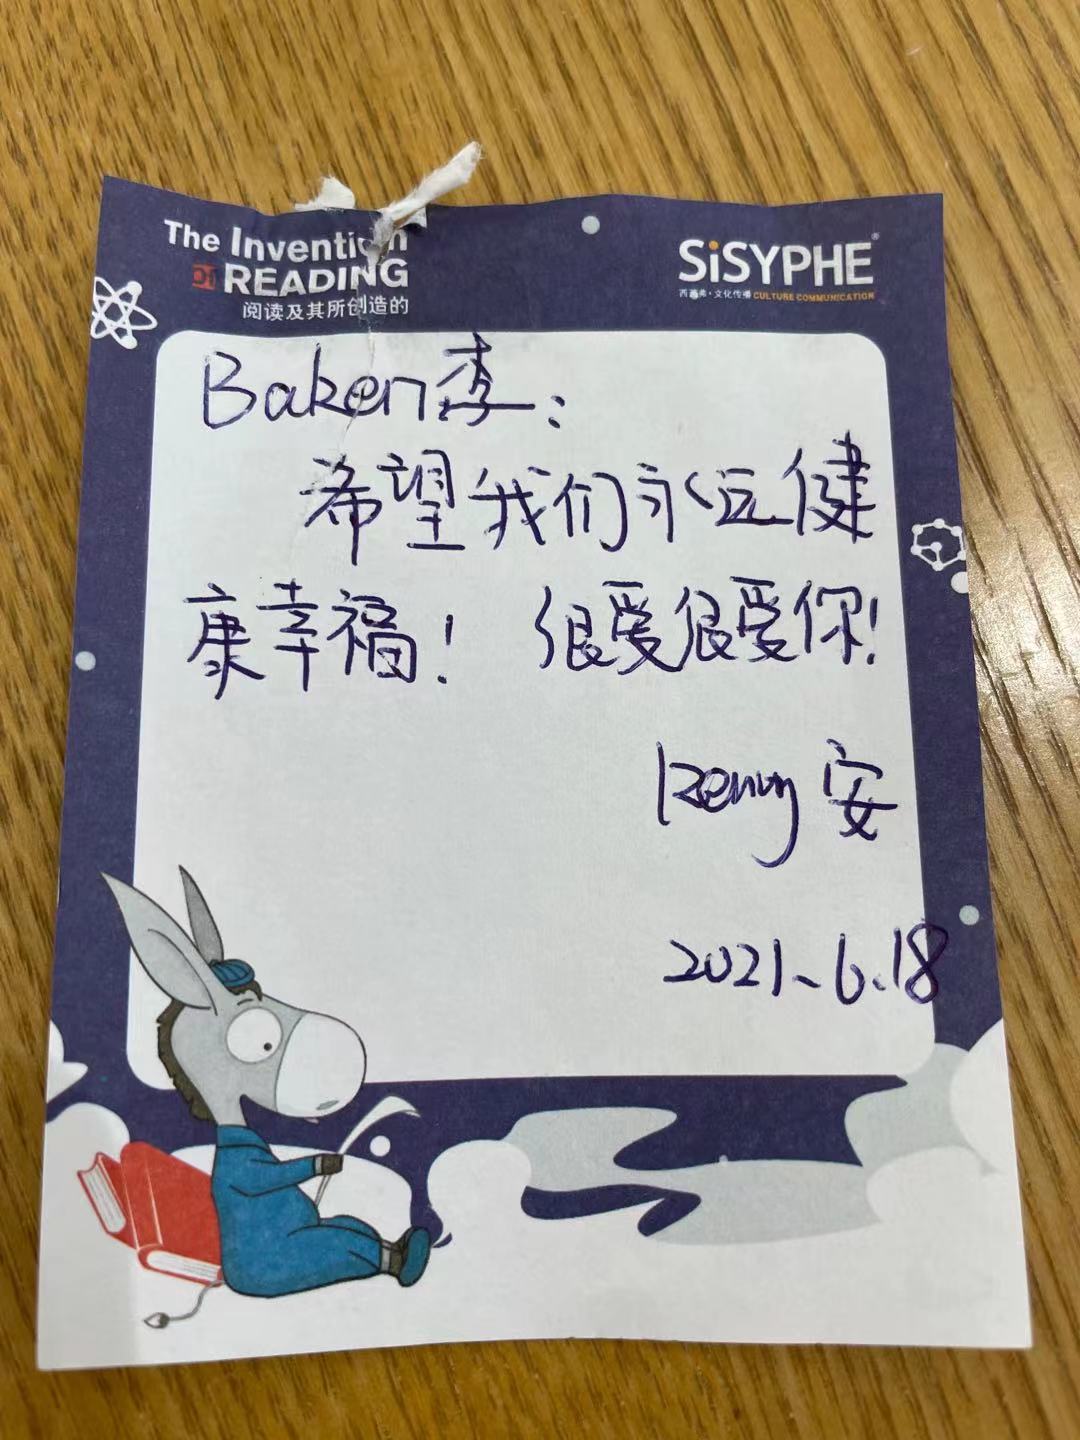 The Invention
OF READING
阅读及其所创造的
SiSYPHE®
西西弗·文化传播 CULTURE COMMUNICATION
Baken李:
希望我们永远健
康幸福! 很爱很爱你!
Kenny安
2021.6.18